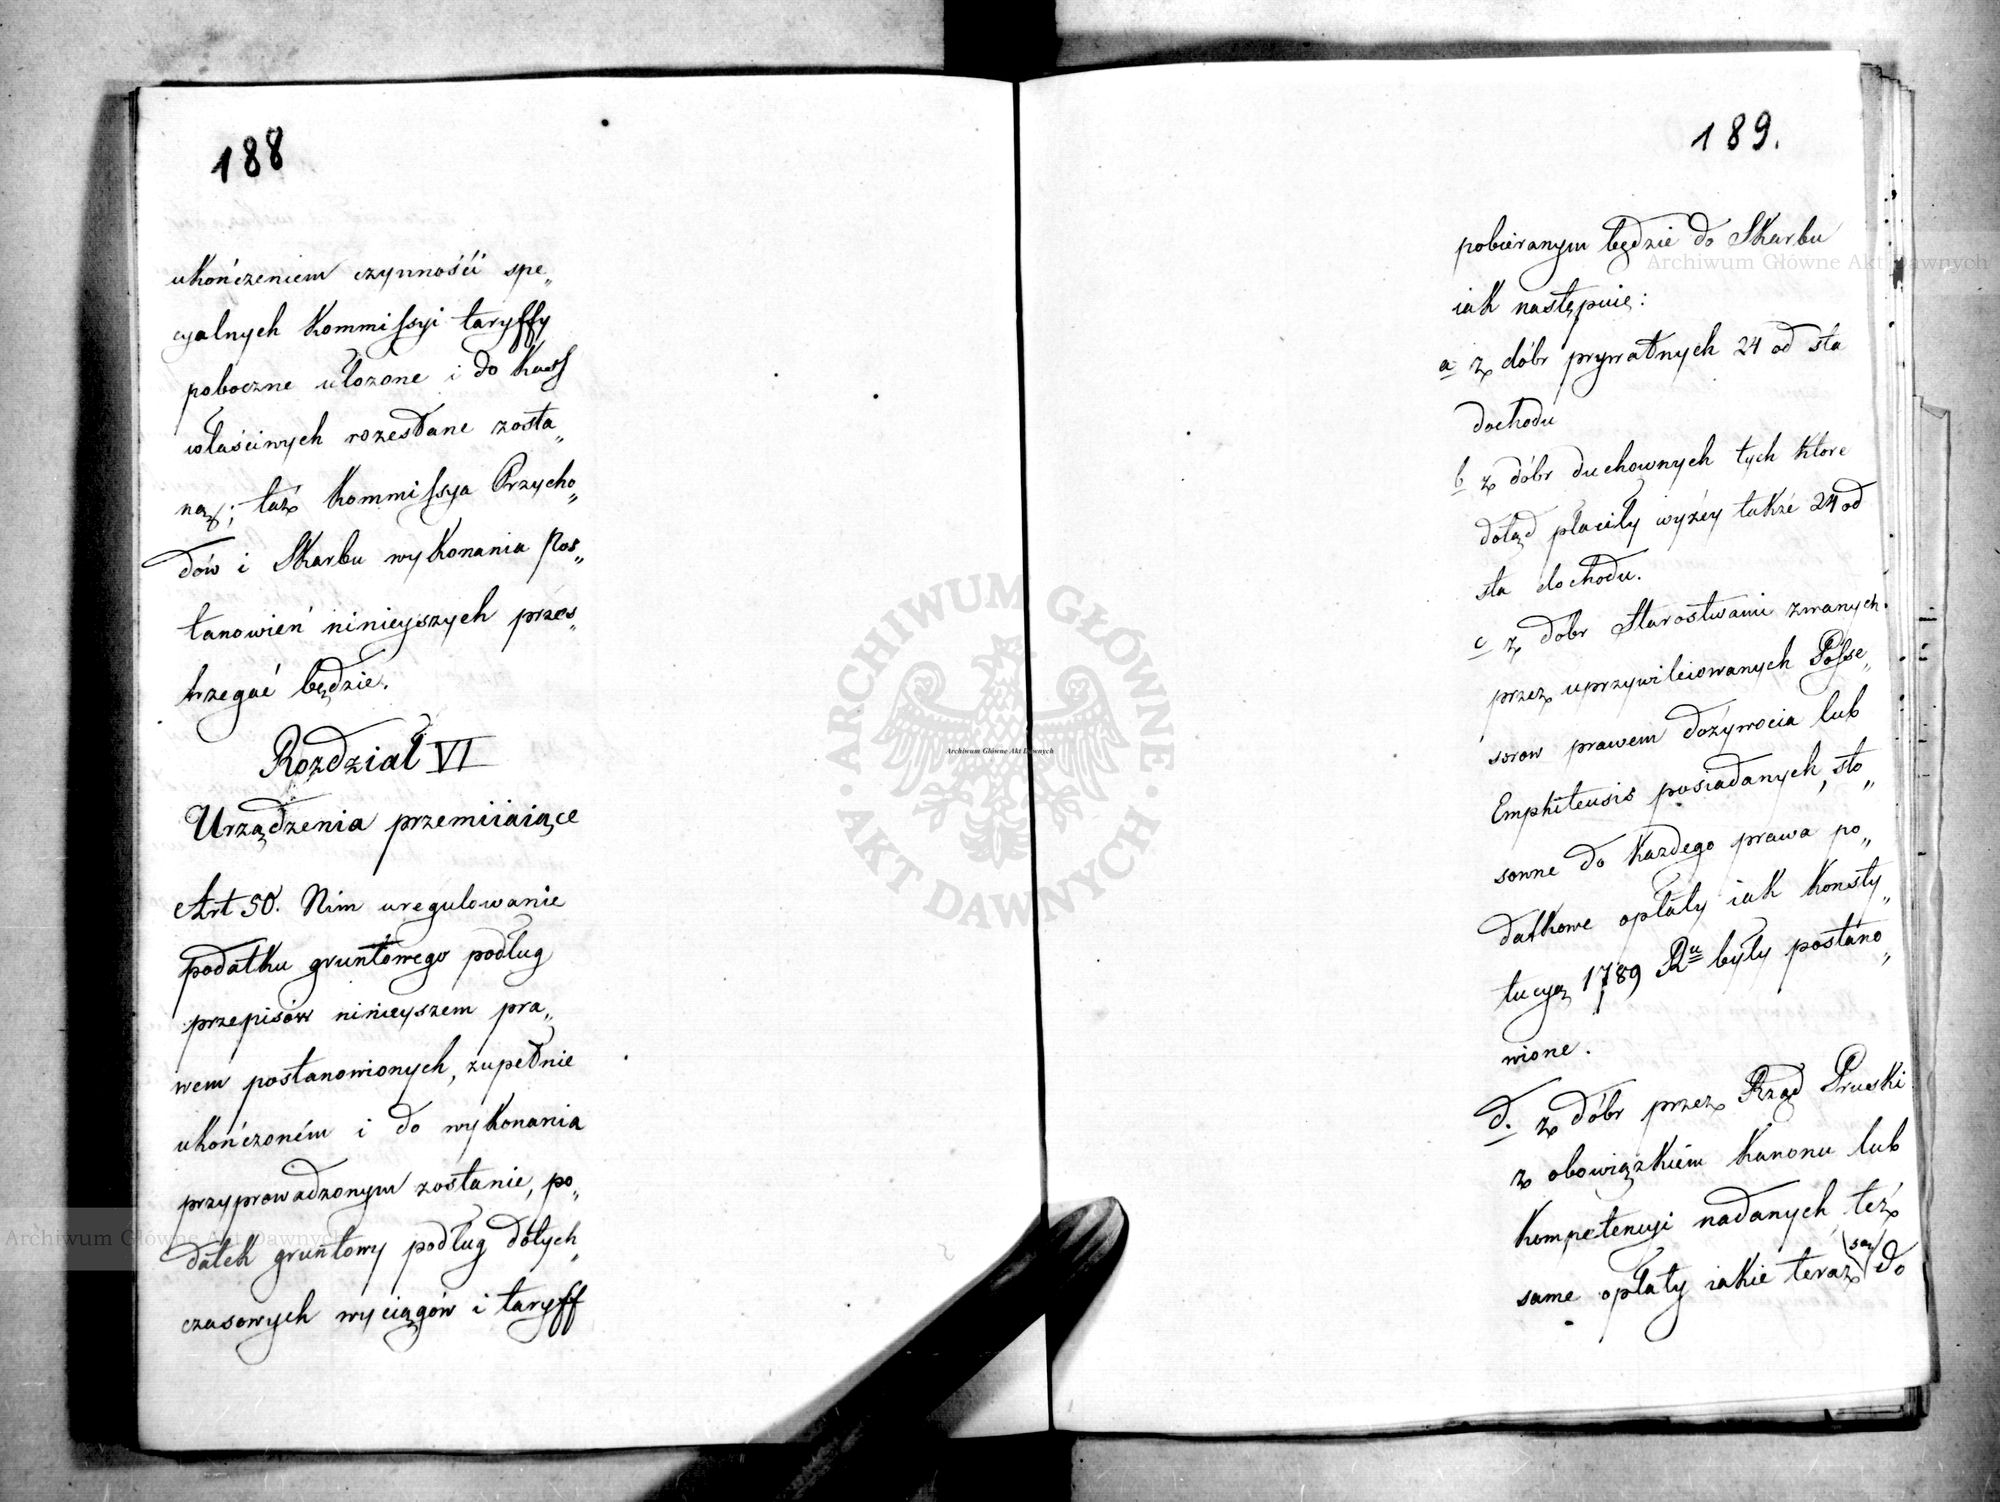 188
ukończeniem czynności spe„
cyalnych Kommissyi taryffy
poboczne ułozone i do Kass
właściwych rozesłane zosta„
ną; taż Kommissya Przycho„
dów i Skarbu wykonania Pos„
tanowień ninieyszych przes„
trzegać będzie.
Rozdział VI
Urządzenia przemiiaiące
Art 50. Nim uregulowanie
podatku gruntowego podług
przepisów ninieyszem pra„
wem postanowionych, zupełnie
ukończoném i do wykonania
przyprowadzonym zostanie, po„
datek gruntowy podług dotych„
czasowych wyciągów i taryff
189.
pobieranym będzie do Skarbu
iak następuie:
a z dóbr prywatnych 24 od sta
dochodu
b z dóbr duchownych tych które
dotąd płaciły wyżéy także 24 od
sta dochodu.
c z dóbr Starostwami zwanych
przez uprzywileiowanych Posse„
sorow prawem dożywocia lub
Emphiteusis posiadanych, sto„
sowne do każdego prawa po„
datkowe opłaty iak Konsty„
tucyą 1789 Ru były postano„
wione.
d. z dóbr przez Rząd Pruski
z obowiązkiem Kanonu lub
Kompetencyi nadanych też
same opłaty iakie teraz są do
Archiwum Główne Akt Dawnych
Archiwum Główne Akt Dawnych
Archiwum Główne Akt Dawnych
ARCHIWUM GŁÓWNE · AKT DAWNYCH ·